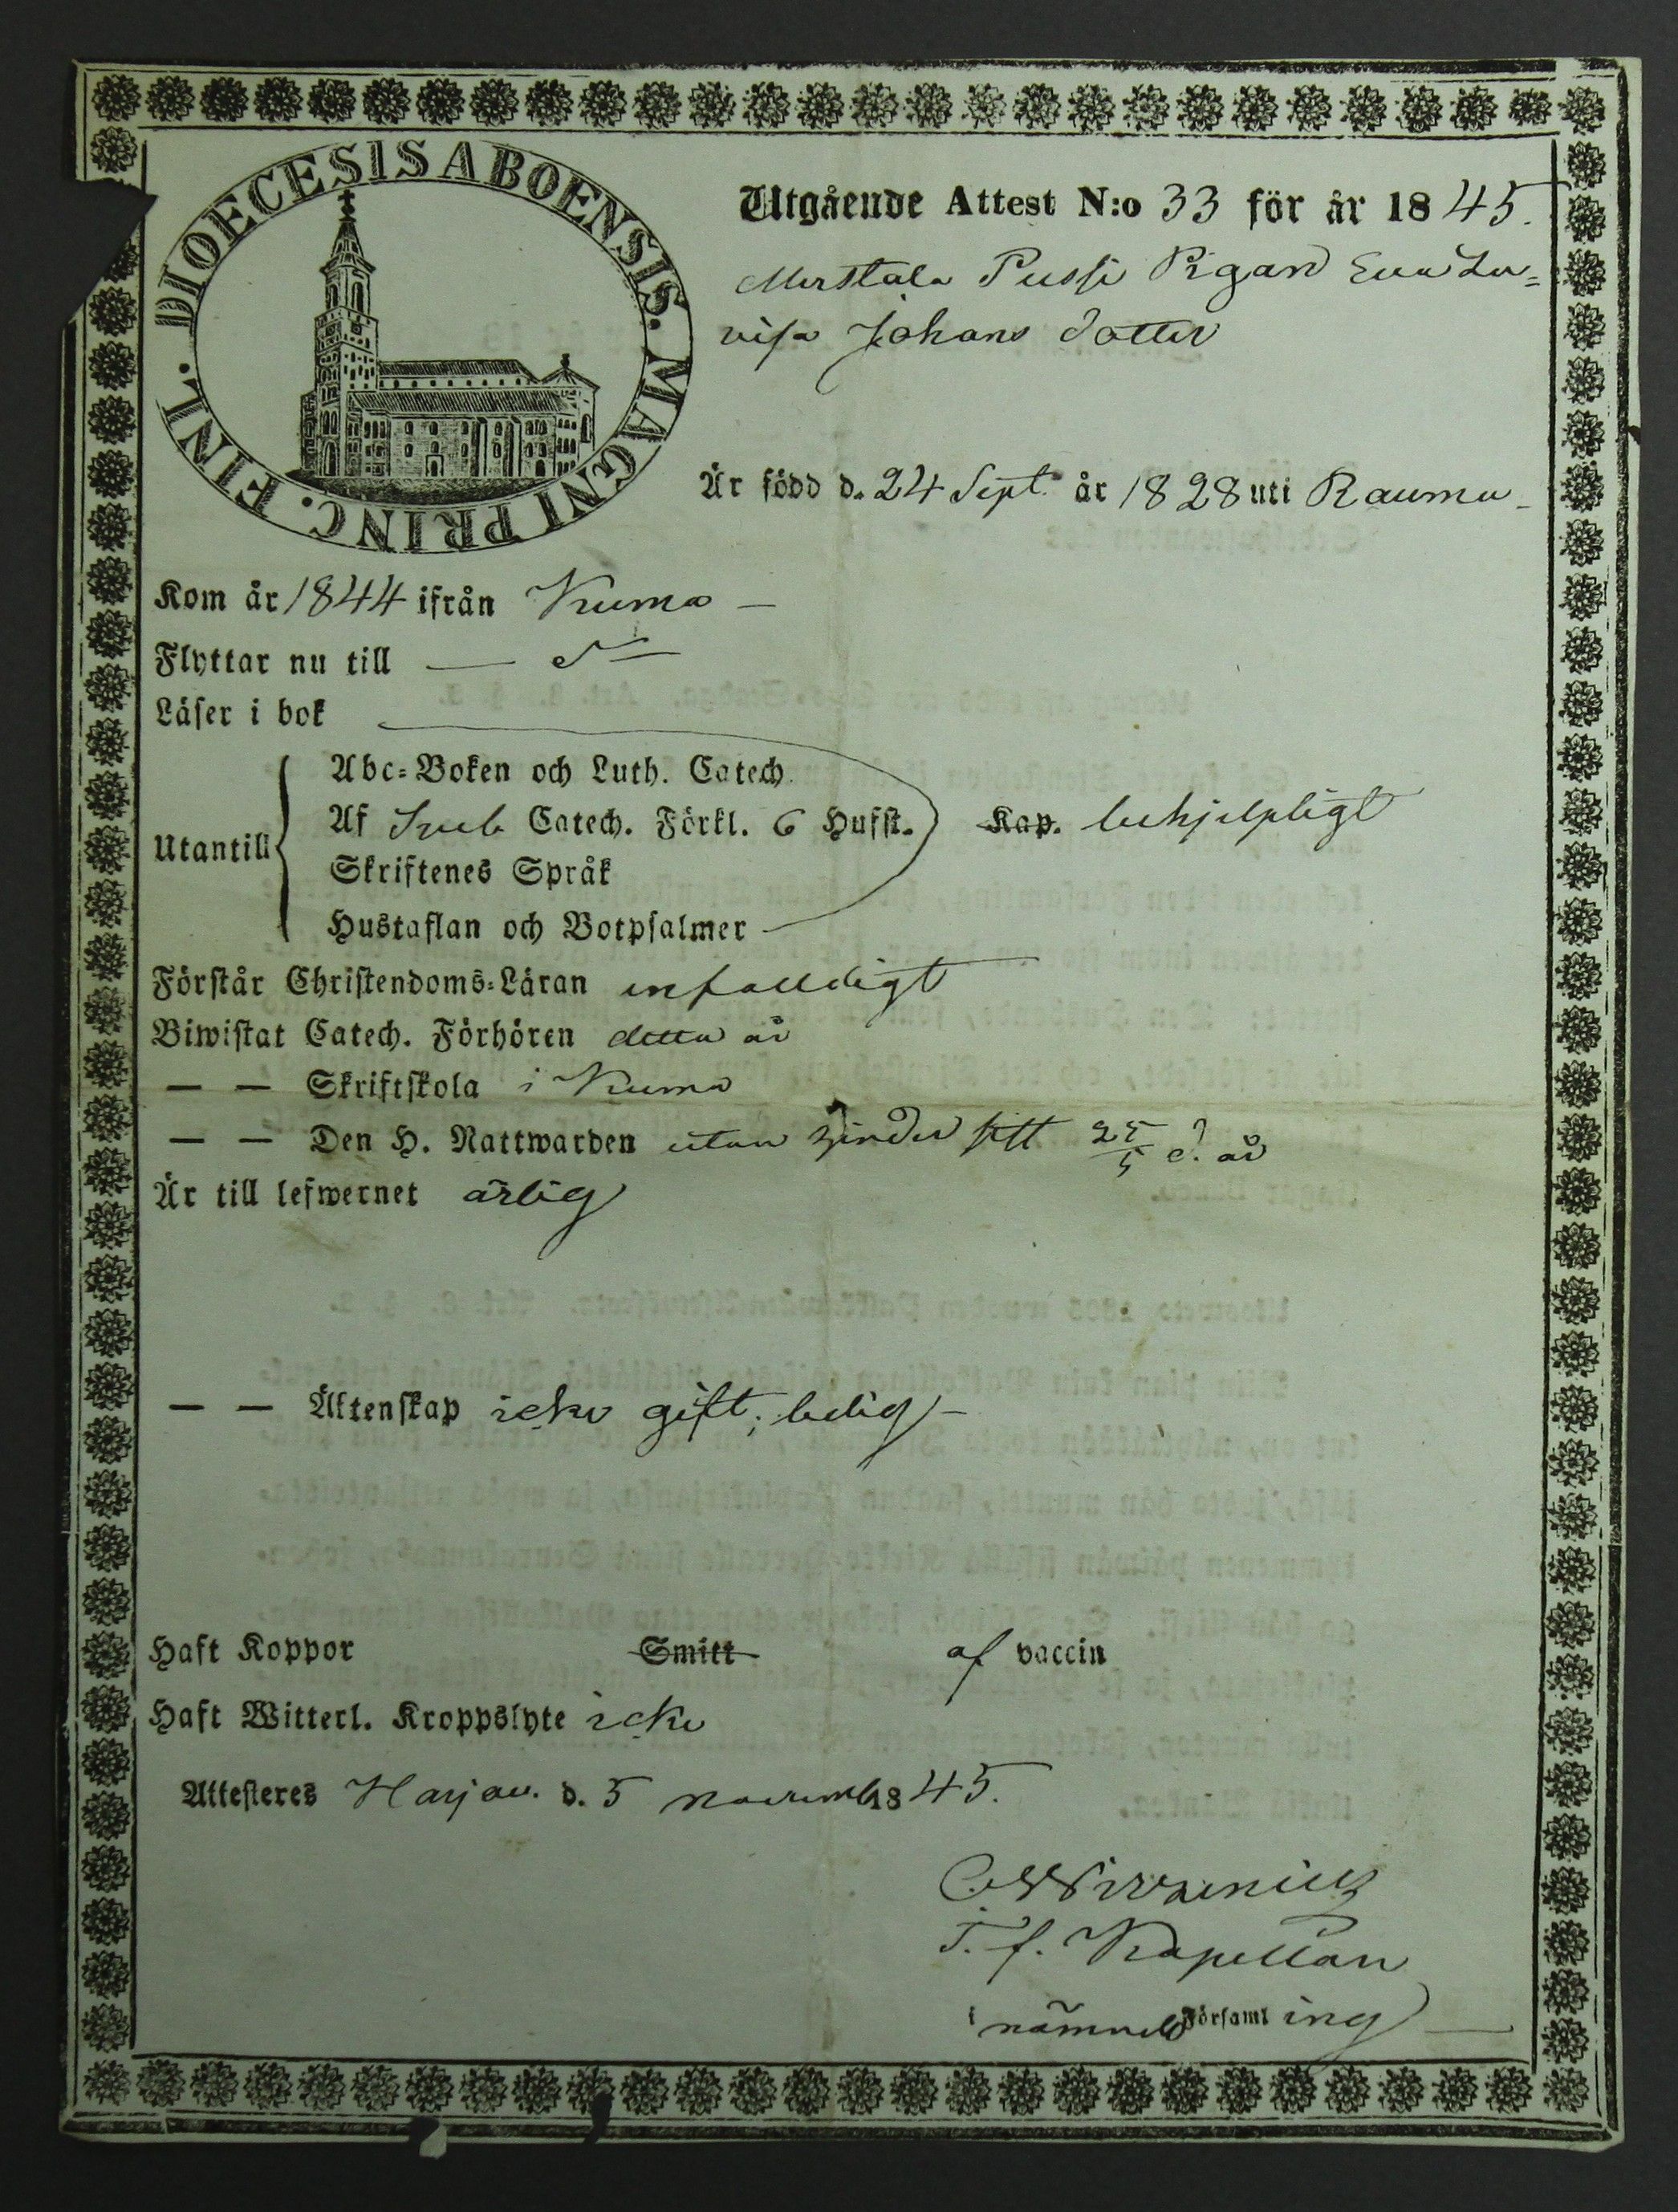 DIOECESIS ABOENSIS. MAGNI PRINC. FINL.
Utgående Attest N:o 33 för år 1845.
Merstala Pussi Pigan Eva Lo-
visa Johans dotter
Är född d. 24 Sept. år 1828 uti Raumo
Kom år 1844 ifrån Kumo
Flyttar nu till — d:o
Läser i bok
Utantill
Abc-Boken och Luth. Catech.
Af Sveb. Catech. Förkl. 6 Hufst. Kap. behjelpligt
Skriftenes Språk
Hustaflan och Botpsalmer
Förstår Christendoms-Läran enfaldigt
Biwistat Catech. Förhören detta år
— — Skriftskola i Kumo
— — Den H. Nattwarden utan hinder sist 25/5 d. år
Är till lefwernet ärlig
— — Äktenskap icke gift; ledig
Haft Koppor Smitt af vaccin
Haft Witterl. Kroppslyte icke
Attesteres Harjav. d. 5 novemb 1845.
T. f. Kapellan
i nämnde Församling